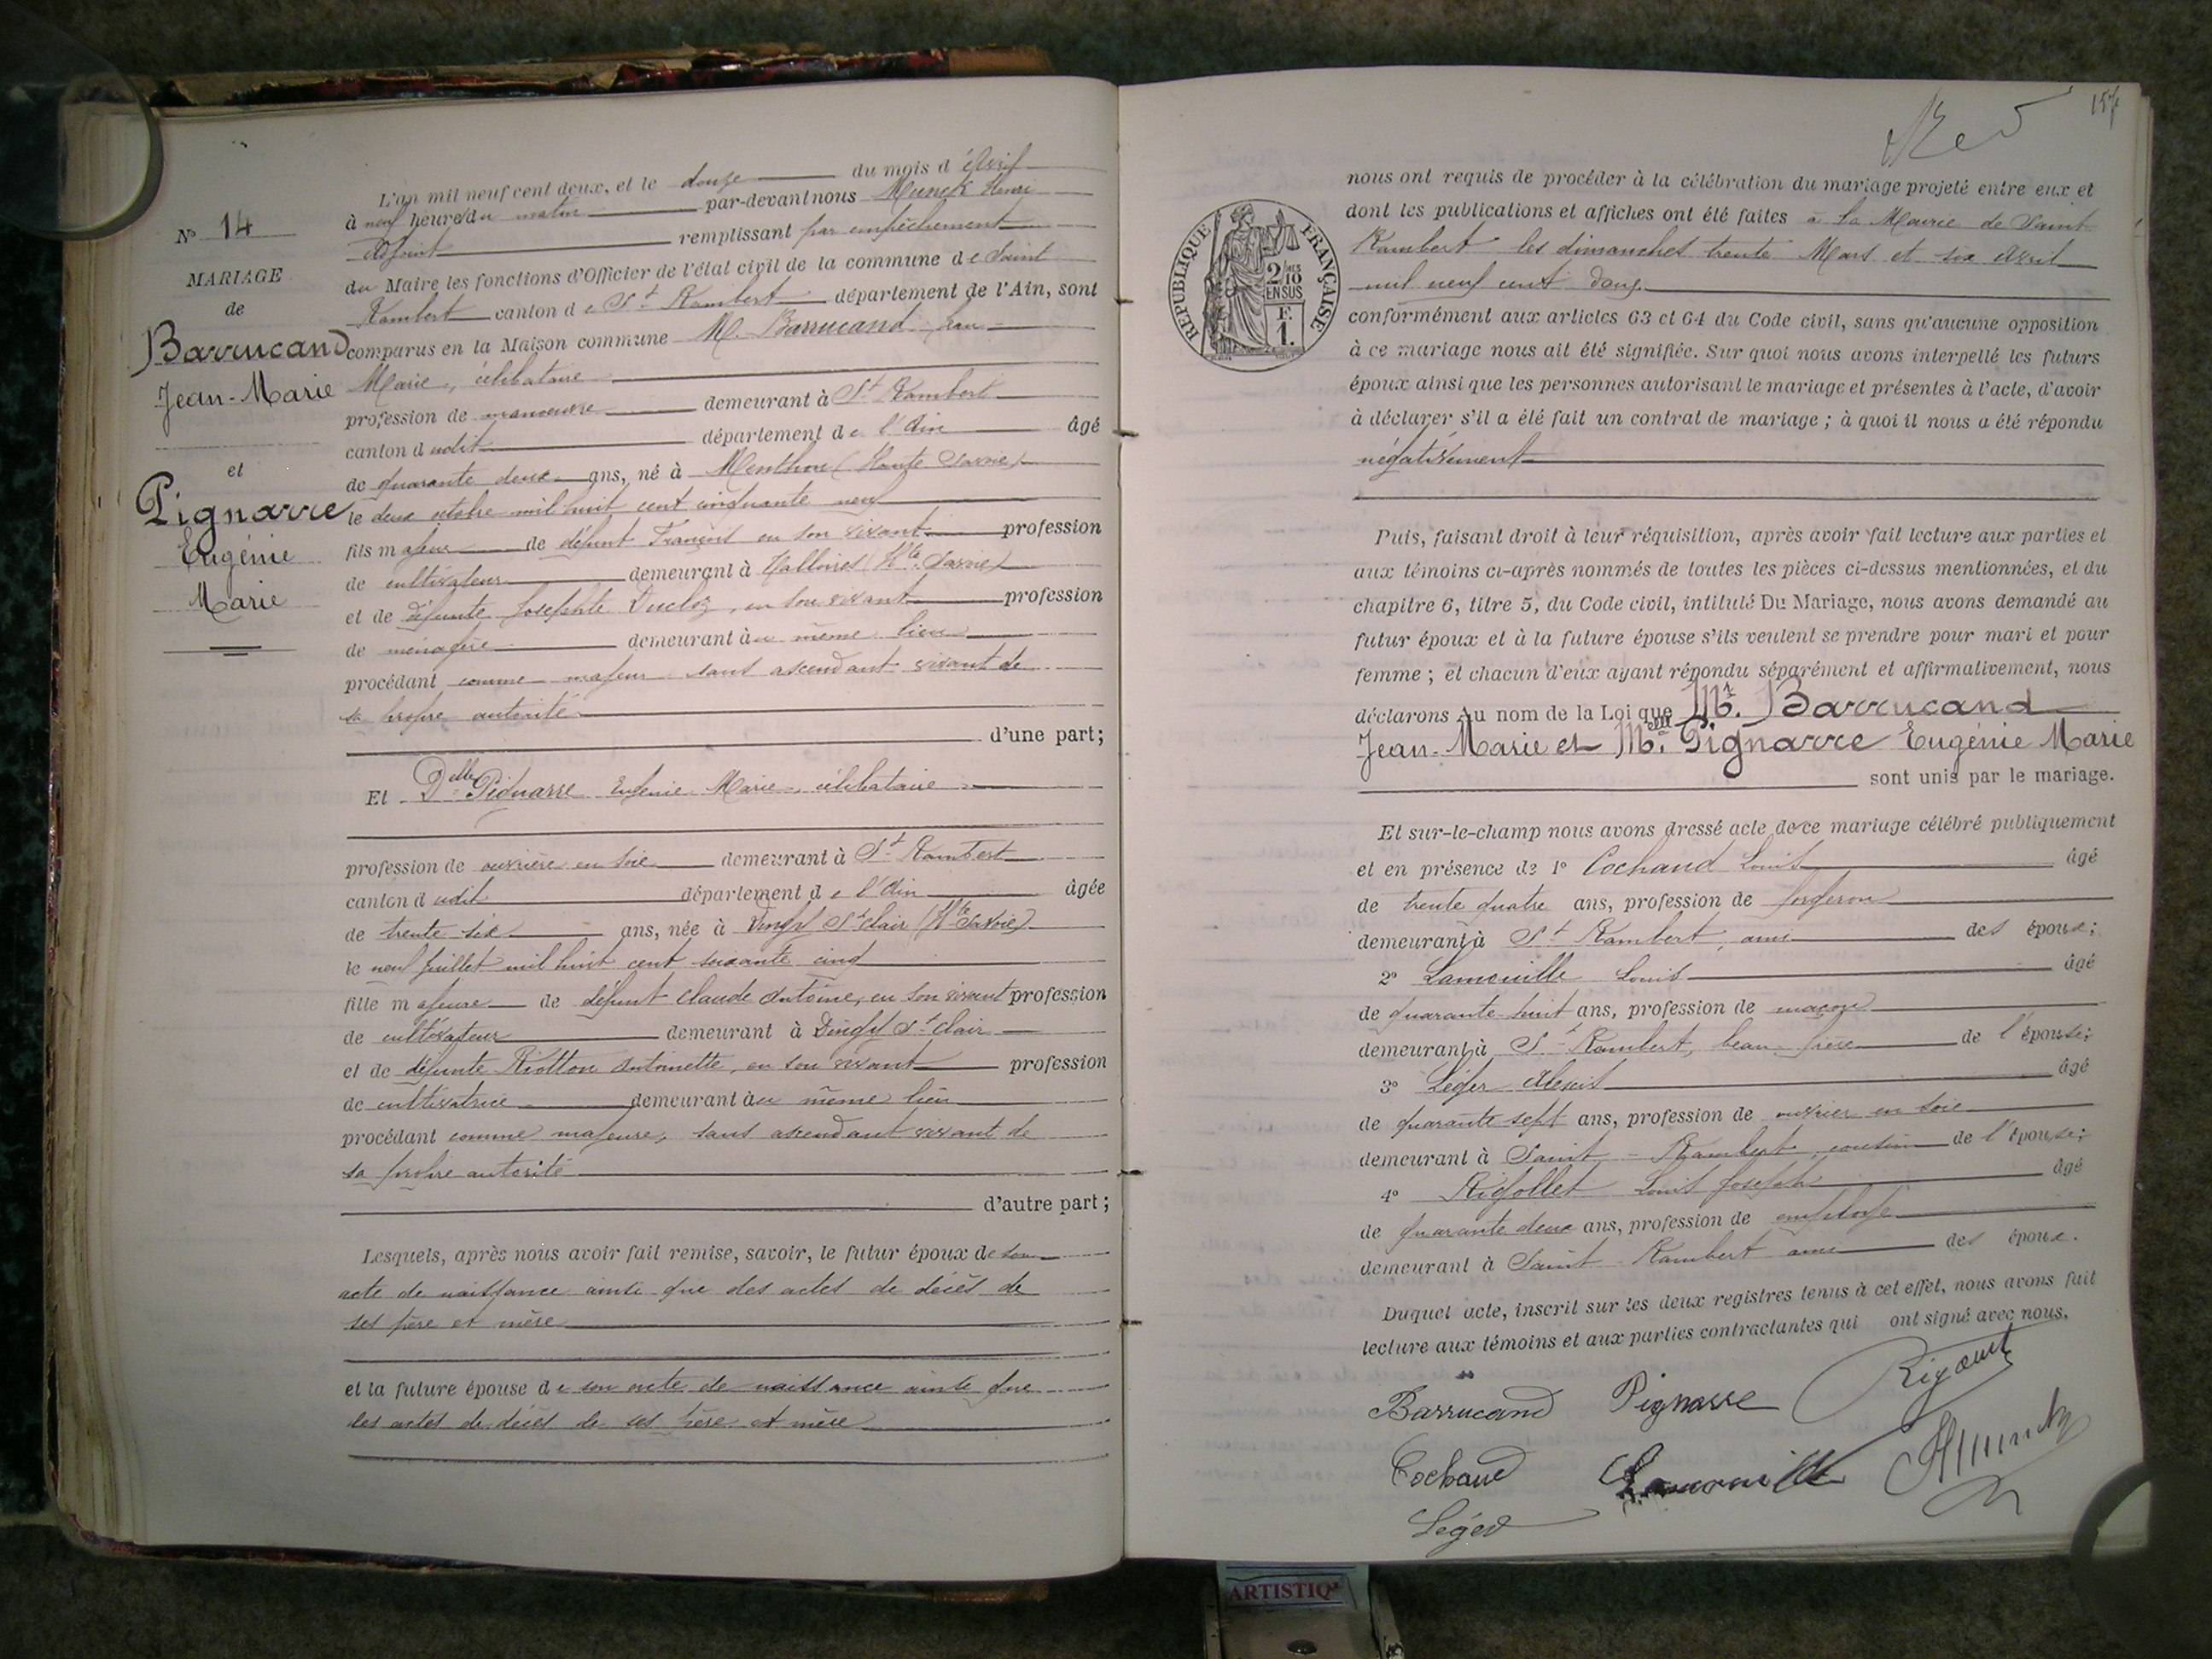 N° 14
MARIAGE
de
Barrucand
Jean-Marie
et
Pignarre
Eugénie
Marie
L'an mil neuf cent deux, et le douze du mois d'Avril
à neuf heures du matin par-devant nous Munck Henri
Adjoint remplissant par empêchement
du Maire les fonctions d'Officier de l'état civil de la commune de Saint
Rambert canton de St Rambert département de l'Ain, sont
comparus en la Maison commune M. Barrucand Jean
Marie, célibataire
profession de manoeuvre demeurant à St Rambert
canton dudit département de l'Ain âgé
de quarante deux ans, né à Menthon (Haute Savoie)
le deux octobre mil huit cent cinquante neuf
fils majeur de défunt François en son vivant profession
de cultivateur demeurant à Talloires (Hte Savoie)
et de défunte Josephte Ducloz, en son vivant profession
de ménagère demeurant au même lieu
procédant comme majeur sans ascendant vivant de
sa propre autorité
d'une part;
Et Delle Pignarre Eugénie Marie, célibataire
profession de ouvrière en soie demeurant à St Rambert
canton dudit département de l'Ain âgée
de trente six ans, née à Dingy St Clair (Hte Savoie)
le neuf juillet mil huit cent soixante cinq
fille majeure de défunt Claude Antoine, en son vivant profession
de cultivateur demeurant à Dingy St Clair
et de défunte Riotton Antoinette, en son vivant profession
de cultivatrice demeurant au même lieu
procédant comme majeure, sans ascendant vivant de
sa propre autorité
d'autre part;
Lesquels, après nous avoir fait remise, savoir, le futur époux de son
acte de naissance ainsi que des actes de décès de
ses père et mère
et la future épouse de son acte de naissance ainsi que
des actes de décès de ses père et mère
157
RÉPUBLIQUE FRANÇAISE
2/10 EN SUS
F. 1.
nous ont requis de procéder à la célébration du mariage projeté entre eux et
dont les publications et affiches ont été faites à la Mairie de Saint
Rambert les dimanches trente Mars et six Avril
mil neuf cent deux
conformément aux articles 63 et 64 du Code civil, sans qu'aucune opposition
à ce mariage nous ait été signifiée. Sur quoi nous avons interpellé les futurs
époux ainsi que les personnes autorisant le mariage et présentes à l'acte, d'avoir
à déclarer s'il a été fait un contrat de mariage; à quoi il nous a été répondu
négativement
Puis, faisant droit à leur réquisition, après avoir fait lecture aux parties et
aux témoins ci-après nommés de toutes les pièces ci-dessus mentionnées, et du
chapitre 6, titre 5, du Code civil, intitulé Du Mariage, nous avons demandé au
futur époux et à la future épouse s'ils veulent se prendre pour mari et pour
femme; et chacun d'eux ayant répondu séparément et affirmativement, nous
déclarons Au nom de la Loi que Mr. Barrucand
Jean-Marie et Melle Pignarre Eugénie Marie
sont unis par le mariage.
Et sur-le-champ nous avons dressé acte de ce mariage célébré publiquement
et en présence de 1° Cochaud Louis âgé
de trente quatre ans, profession de forgeron
demeurant à St Rambert, ami des époux;
2° Lamouille Louis âgé
de quarante-huit ans, profession de maçon
demeurant à St Rambert, beau-frère de l'épouse;
3° Léger Alexis âgé
de quarante sept ans, profession de ouvrier en soie
demeurant à Saint-Rambert, cousin de l'épouse;
4° Rigollet Louis Joseph âgé
de quarante deux ans, profession de employé
demeurant à Saint Rambert ami des époux.
Duquel acte, inscrit sur les deux registres tenus à cet effet, nous avons fait
lecture aux témoins et aux parties contractantes qui ont signé avec nous.
Barrucand Pignarre
Cochaud Lamouille
Léger
ARTISTIQ